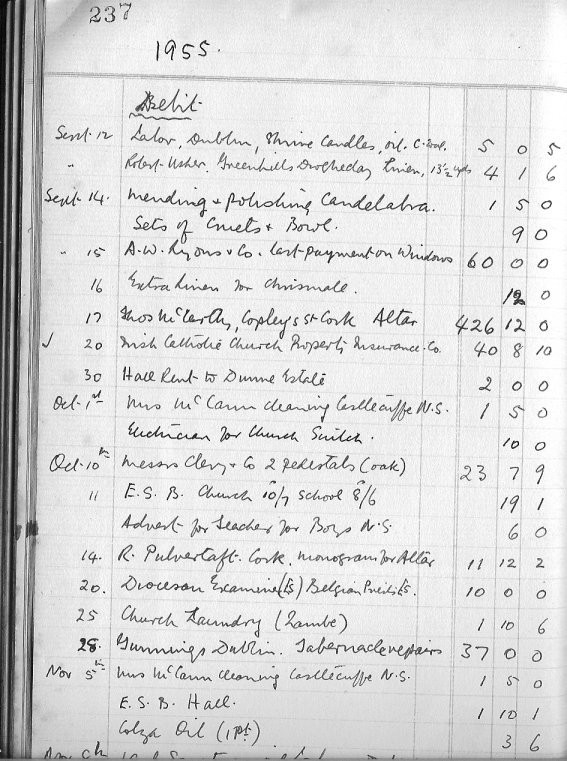 237
1955.
Debit
Sept. 12 Lalor, Dublin, Shrine Candles, oil, C. 5 0 5
" Robert Usher. Greenhills Drogheda, Linen, 13½ yds 4 1 6
Sept. 14. Mending & polishing Candelabra. 1 5 0
Sets of Cruets & Bowl. 9 0
" 15 A.W. Lyons & Co. Last payment on Windows 60 0 0
16 Extra Linen for Chrismale. 12 0
17 Thos McCarthy, Copley's St Cork Altar 426 12 0
✓ 20 Irish Catholic Church Property Insurance Co. 40 8 10
30 Hall Rent to Dunne Estate 2 0 0
Oct. 1st Mrs McCann cleaning Castlecuffe N.S. 1 5 0
Electrician for Church Switch. 10 0
Oct. 10th Messrs Clery & Co 2 pedestals (oak) 23 7 9
11 E.S.B. Church 10/7 School 8/6 19 1
Advert for Teacher for Boys N.S 6 0
14. R. Pulvertaft. Cork. Monogram for Altar 11 12 2
20. Diocesan Examiner (£5) Belgian £5. 10 0 0
25 Church Laundry (Lambe) 1 10 6
28. Gunnings Dublin. Tabernacle repairs 37 0 0
Nov 5th Mrs McCann cleaning Castlecuffe N.S. 1 5 0
E.S.B. Hall. 1 10 1
Colza Oil (1 Pt.) 3 6